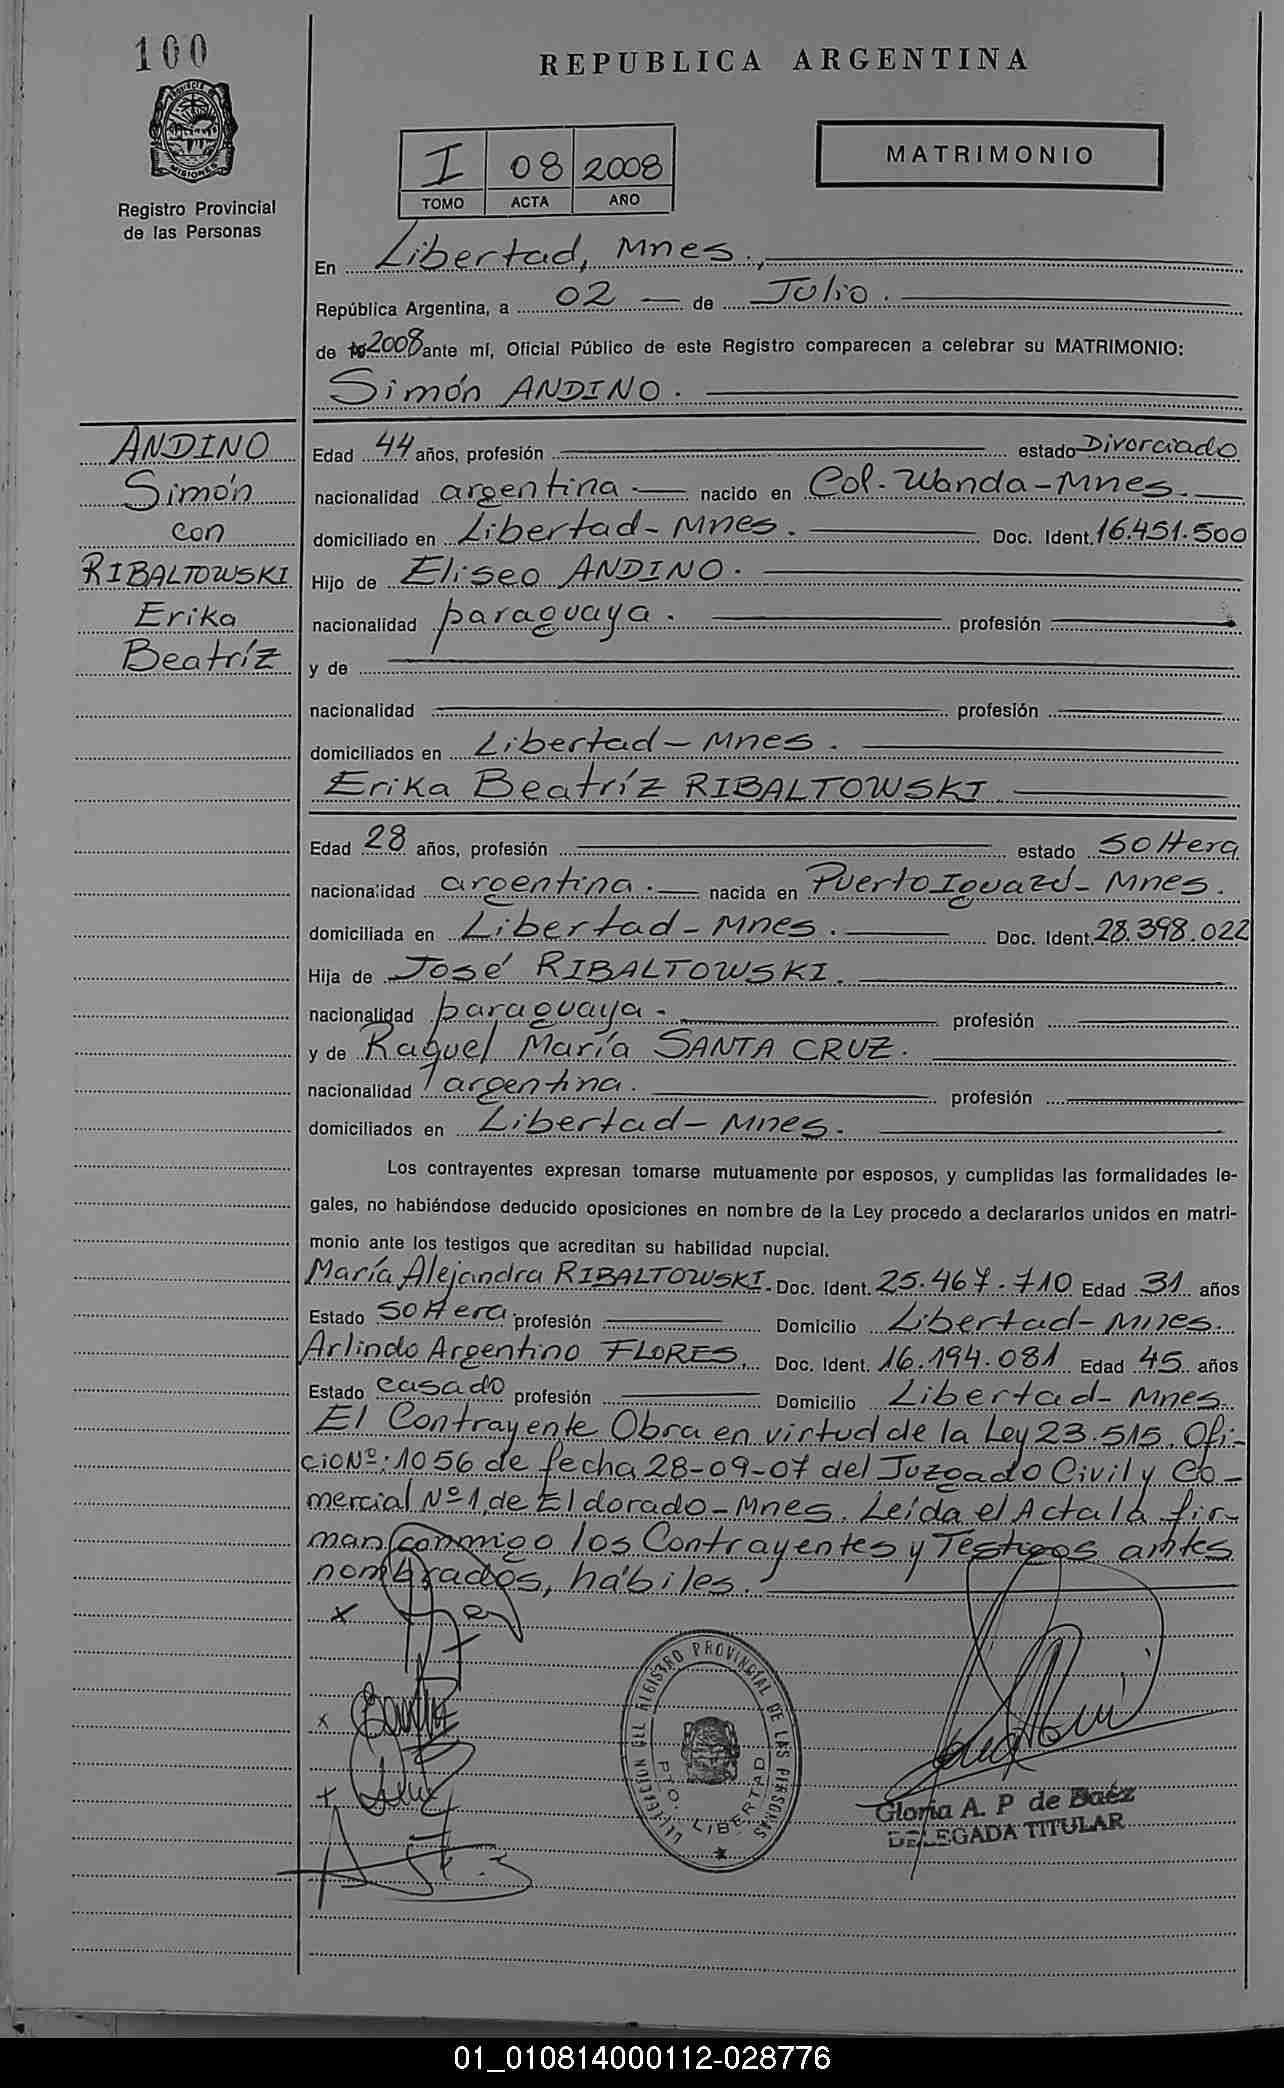 100
REPUBLICA ARGENTINA
PROVINCIA DE
MISIONES
Registro Provincial
de las Personas
I 08 2008
TOMO ACTA AÑO
MATRIMONIO
En Libertad, Mnes.,
República Argentina, a 02 de Julio.
de 2008 ante mí, Oficial Público de este Registro comparecen a celebrar su MATRIMONIO:
Simón ANDINO.
ANDINO
Simón
con
RIBALTOWSKI
Erika
Beatríz
Edad 44 años, profesión estado Divorciado
nacionalidad argentina.- nacido en Col. Wanda-Mnes.
domiciliado en Libertad-Mnes. Doc. Ident. 16.451.500
Hijo de Eliseo ANDINO.
nacionalidad paraguaya. profesión
y de
nacionalidad profesión
domiciliados en Libertad-Mnes.
Erika Beatríz RIBALTOWSKI.
Edad 28 años, profesión estado soltera
nacionalidad argentina.- nacida en Puerto Iguazú-Mnes.
domiciliada en Libertad-Mnes. Doc. Ident. 28.398.022
Hija de José RIBALTOWSKI.
nacionalidad paraguaya- profesión
y de Raquel María SANTA CRUZ.
nacionalidad argentina. profesión
domiciliados en Libertad-Mnes.
Los contrayentes expresan tomarse mutuamente por esposos, y cumplidas las formalidades le-
gales, no habiéndose deducido oposiciones en nombre de la Ley procedo a declararlos unidos en matri-
monio ante los testigos que acreditan su habilidad nupcial.
María Alejandra RIBALTOWSKI. Doc. Ident. 25.467.710 Edad 31 años
Estado soltera profesión Domicilio Libertad-Mnes.
Arlindo Argentino FLORES. Doc. Ident. 16.194.081 Edad 45 años
Estado casado profesión Domicilio Libertad-Mnes.
El Contrayente Obra en virtud de la Ley 23.515. Ofi-
cio Nº: 1056 de fecha 28-09-07 del Juzgado Civil y Co-
mercial Nº 1, de Eldorado-Mnes. Leída el Acta la fir-
man conmigo los Contrayentes y Testigos antes
nombrados, hábiles.
DELEGACION DEL REGISTRO PROVINCIAL DE LAS PERSONAS
PTO. LIBERTAD
Gloria A. P de Baéz
DELEGADA TITULAR
01_010814000112-028776